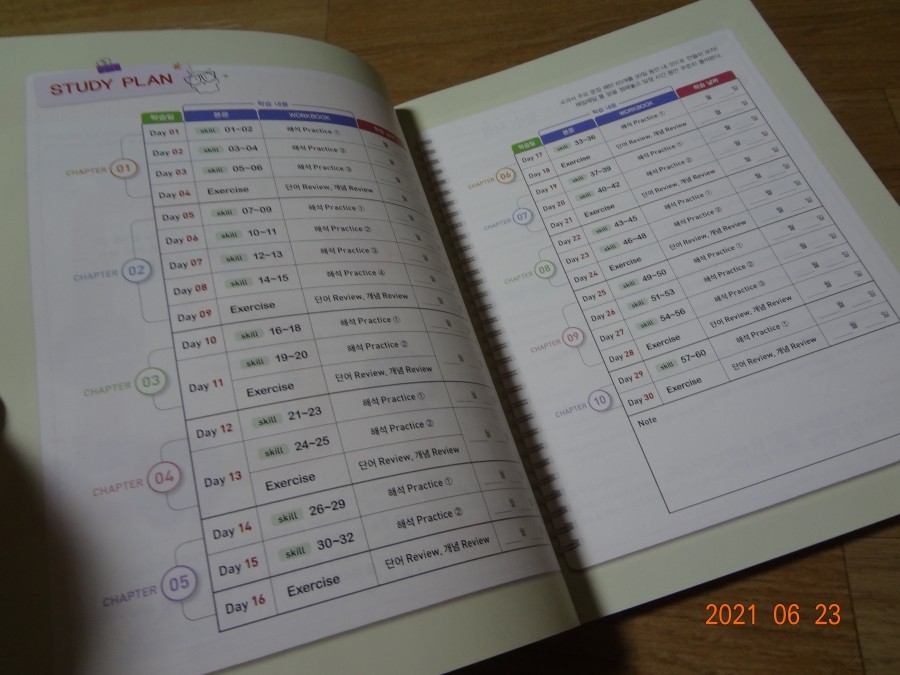 STUDY PLAN
학습 내용
학습일 본문 WORKBOOK
CHAPTER 01
Day 01 skill 01~02 해석 Practice ① 월
Day 02 skill 03~04 해석 Practice ② 월
Day 03 skill 05~06 해석 Practice ③ 월
Day 04 Exercise 단어 Review, 개념 Review 월
CHAPTER 02
Day 05 skill 07~09 해석 Practice ① 월
Day 06 skill 10~11 해석 Practice ② 월
Day 07 skill 12~13 해석 Practice ③ 월
Day 08 skill 14~15 해석 Practice ④ 월
Day 09 Exercise 단어 Review, 개념 Review 월
CHAPTER 03
Day 10 skill 16~18 해석 Practice ① 월
Day 11 skill 19~20 해석 Practice ② 월
Exercise 단어 Review, 개념 Review
CHAPTER 04
Day 12 skill 21~23 해석 Practice ① 월
Day 13 skill 24~25 해석 Practice ② 월
Exercise 단어 Review, 개념 Review
CHAPTER 05
Day 14 skill 26~29 해석 Practice ① 월
Day 15 skill 30~32 해석 Practice ② 월
Day 16 Exercise 단어 Review, 개념 Review 월
학습 내용
학습일 본문 WORKBOOK 학습 날짜
CHAPTER 06
Day 17 skill 33~36 해석 Practice ① 월 일
Day 18 Exercise 단어 Review, 개념 Review 월 일
CHAPTER 07
Day 19 skill 37~39 해석 Practice ① 월 일
Day 20 skill 40~42 해석 Practice ② 월 일
Day 21 Exercise 단어 Review, 개념 Review 월 일
CHAPTER 08
Day 22 skill 43~45 해석 Practice ① 월 일
Day 23 skill 46~48 해석 Practice ② 월 일
Day 24 Exercise 단어 Review, 개념 Review 월 일
CHAPTER 09
Day 25 skill 49~50 해석 Practice ① 월 일
Day 26 skill 51~53 해석 Practice ② 월 일
Day 27 skill 54~56 해석 Practice ③ 월 일
Day 28 Exercise 단어 Review, 개념 Review 월 일
CHAPTER 10
Day 29 skill 57~60 해석 Practice ① 월 일
Day 30 Exercise 단어 Review, 개념 Review 월 일
Note
2021 06 23